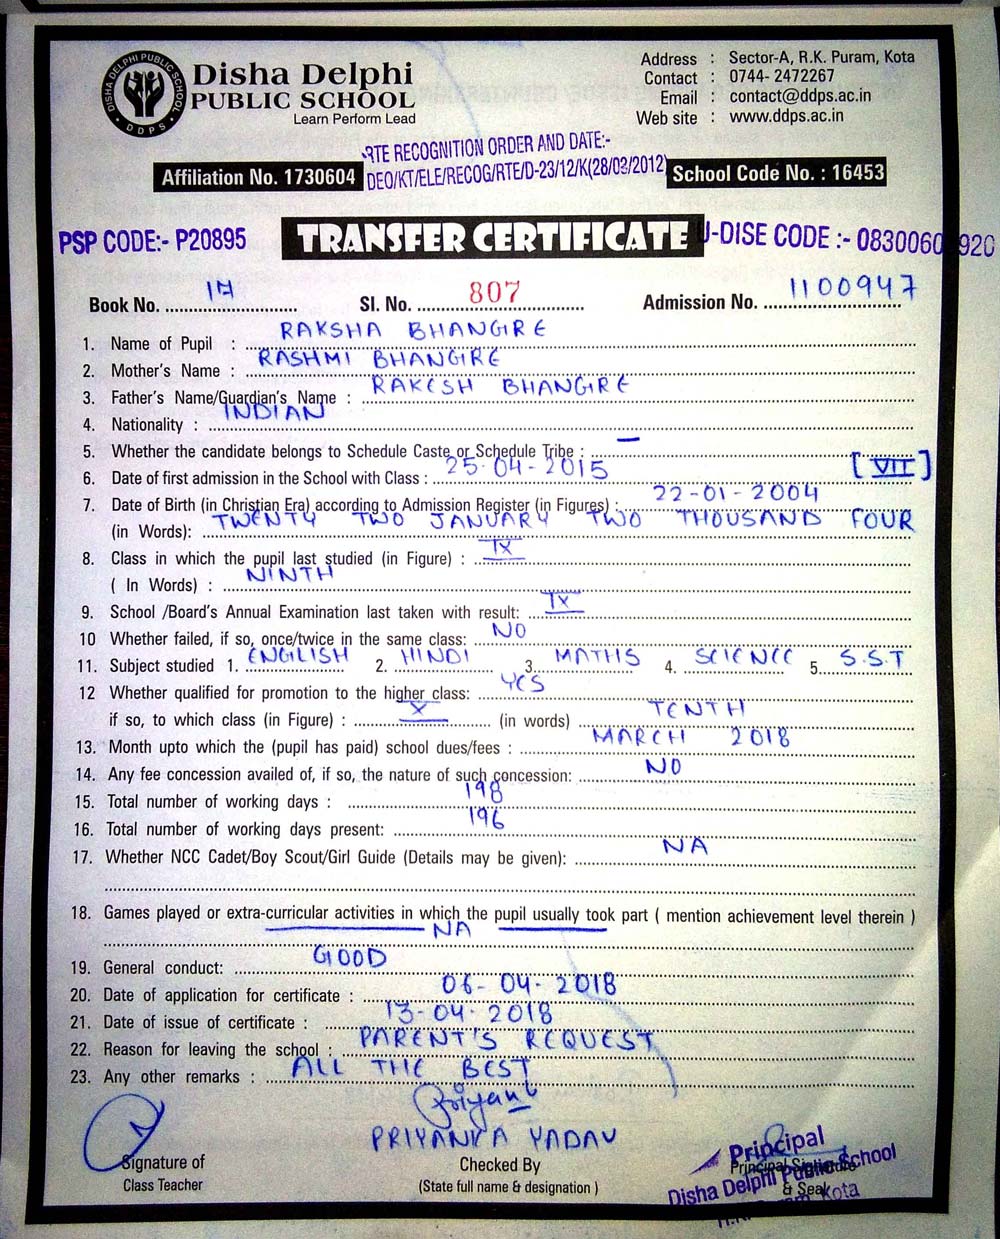 DISHA DELPHI PUBLIC SCHOOL
DDPS
Disha Delphi
PUBLIC SCHOOL
Learn Perform Lead
Address : Sector-A, R.K. Puram, Kota
Contact : 0744- 2472267
Email : contact@ddps.ac.in
Web site : www.ddps.ac.in
RTE RECOGNITION ORDER AND DATE:-
Affiliation No. 1730604 DEO/KT/ELE/RECOG/RTE/D-23/12/K(28/03/2012) School Code No. : 16453
PSP CODE:- P20895 TRANSFER CERTIFICATE U-DISE CODE :- 0830060 920
Book No. 17 Sl. No. 807 Admission No. 1100947
1. Name of Pupil : RAKSHA BHANGIRE
2. Mother's Name : RASHMI BHANGIRE
3. Father's Name/Guardian's Name : RAKESH BHANGIRE
4. Nationality : INDIAN
5. Whether the candidate belongs to Schedule Caste or Schedule Tribe : —
6. Date of first admission in the School with Class : 25-04-2015 [VII]
7. Date of Birth (in Christian Era) according to Admission Register (in Figures) : 22-01-2004
(in Words): TWENTY TWO JANUARY TWO THOUSAND FOUR
8. Class in which the pupil last studied (in Figure) : IX
( In Words) : NINTH
9. School /Board's Annual Examination last taken with result: IX
10 Whether failed, if so, once/twice in the same class: NO
11. Subject studied 1. ENGLISH 2. HINDI 3. MATHS 4. SCIENCE 5. S.S.T
12 Whether qualified for promotion to the higher class: YES
if so, to which class (in Figure) : X (in words) TENTH
13. Month upto which the (pupil has paid) school dues/fees : MARCH 2018
14. Any fee concession availed of, if so, the nature of such concession: NO
15. Total number of working days : 198
16. Total number of working days present: 196
17. Whether NCC Cadet/Boy Scout/Girl Guide (Details may be given): NA
18. Games played or extra-curricular activities in which the pupil usually took part ( mention achievement level therein )
NA
19. General conduct: GOOD
20. Date of application for certificate : 06-04-2018
21. Date of issue of certificate : 13-04-2018
22. Reason for leaving the school : PARENT'S REQUEST
23. Any other remarks : ALL THE BEST
PRIYANKA YADAV
Signature of
Class Teacher
Checked By
(State full name & designation )
Principal
Principal Signature
Disha Delphi Public School
& Seal
Kota